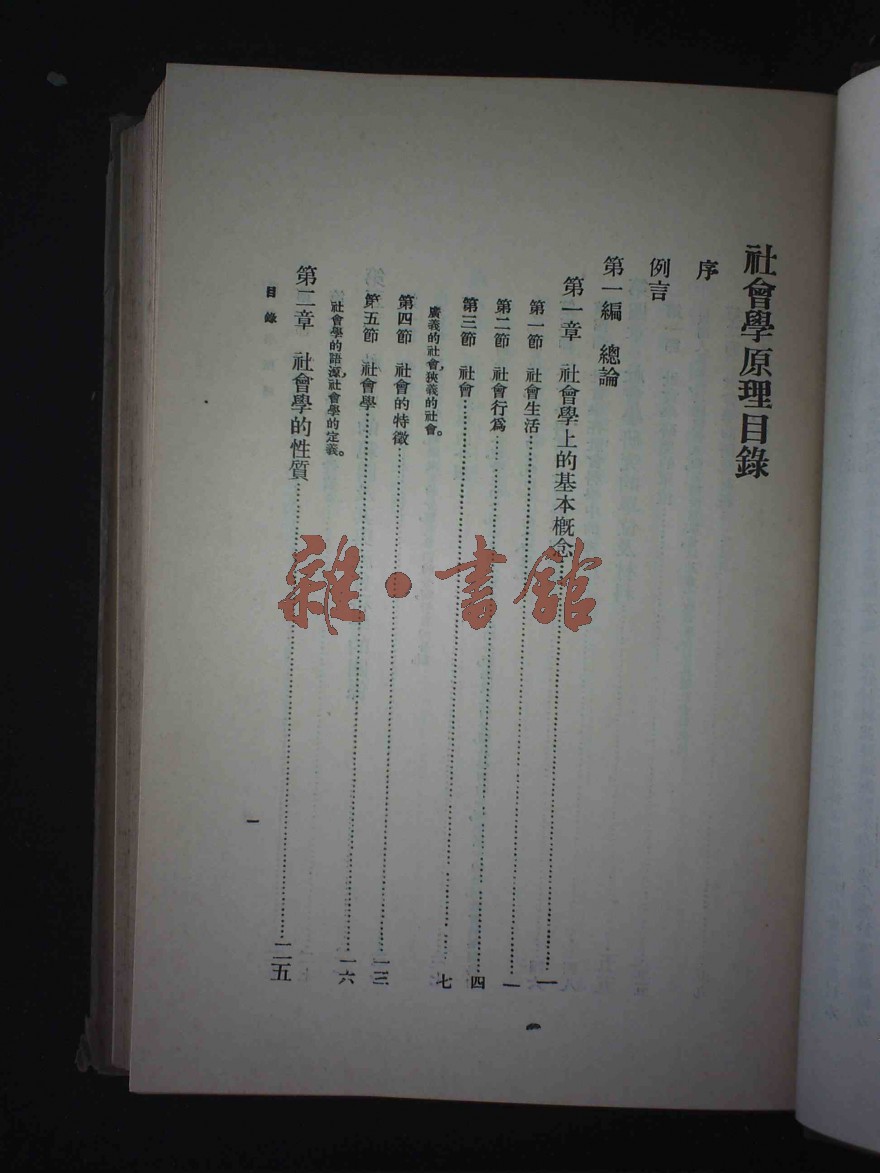 社會學原理目錄
序
例言
第一編 總論
第一章 社會學上的基本概念……一
第一節 社會生活……一
第二節 社會行爲……四
第三節 社會……七
廣義的社會，狹義的社會。
第四節 社會的特徵……一三
第五節 社會學……一六
社會學的語源，社會學的定義。
第二章 社會學的性質……二五
目錄
一
雜·書館